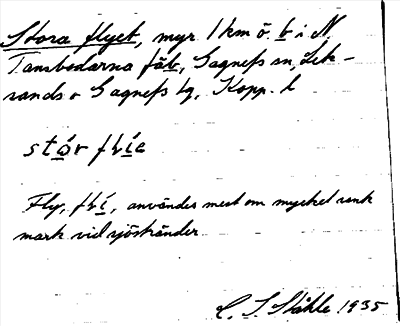 Stora flyet, myr 1 km ö. b i N.
Tansbodarna fäb, Gagnefs sn, Lek-
sands o Gagnefs tg, Kopp. l
stór flie
Fly, flí, användes mest om mycket sank
mark vid sjöstränder.
C. I. Ståhle 1935